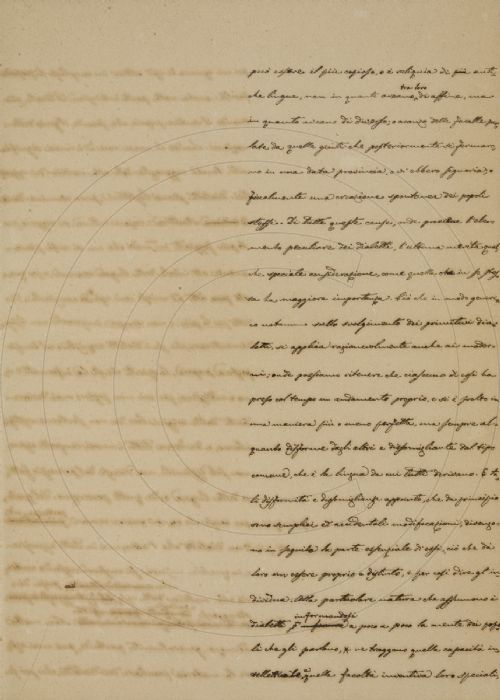 può essere il più copioso, o è reliquia di più anti-
che lingue, non in quanti avean tra loro di affine, ma
in quanto avean di diverso; o avanzo delle favelle par
late da quelle genti che posteriormente si fermaro
no in una data provincia, e vi ebbero signoria; o
finalmente una creazione spontanea dei popoli
stessi. Di tutte queste cause, onde procede l'ele-
mento peculiare dei dialetti, l'ultima merita qual
che speciale considerazione, come quella che in se stes
sa ha maggiore importanza. Ciò che in modo generi
co notammo nello svolgimento dei primitivi dia
letti, si applica ragionevolmente anche ai moder
ni; onde possiamo ritenere che ciascuno di essi ha
preso col tempo un andamento proprio, e si è svolto in
una maniera più o meno perfetta, ma sempre al-
quanto difforme dagli altri e dissomigliante dal tipo
comune, che è la lingua da cui tutti derivano. E ta
li difformità e dissomiglianze apparenti, che da principio
sono semplici ed accidentali modificazioni, divengo
no in seguito la parte essenziale di essi, ciò che dà
loro un essere proprio e distinto, e per così dire gl'in
dividua. Alla particolare natura che assumono i
dialetti informandosi a poco a poco la mente dei popo
li che gli parlano, ne traggono quella capacità in
quella facoltà inventiva loro speciale,